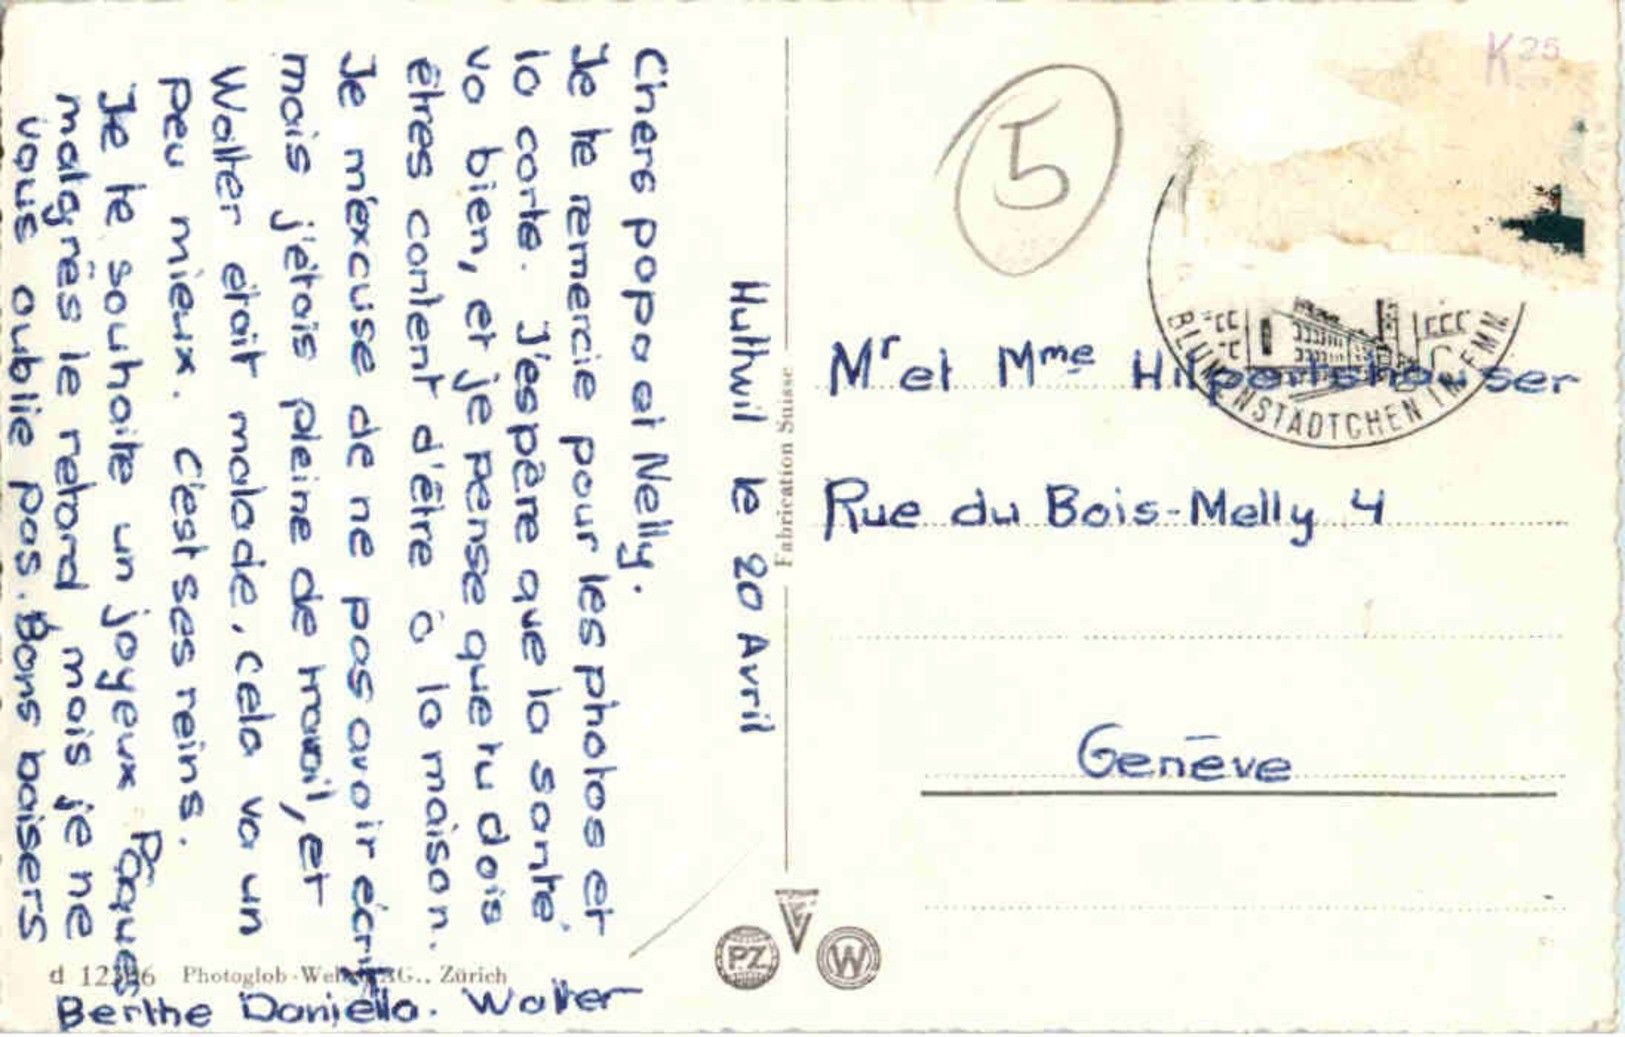 Huttwil le 20 Avril
Chers papa et Nelly.
Je te remercie pour les photos et
la carte. J'espère que la santé
va bien, et je pense que tu dois
êtres content d'être à la maison.
Je m'éxcuse de ne pas avoir écrit
mais j'étais pleine de travail, et
Walter était malade, cela va un
peu mieux. C'est ses reins.
Je te souhaite un joyeux Pâques
malgrês le retard mais je ne
vous oublie pas. Bons baisers
Berthe Daniella. Walter
d Photoglob-We AG., Zürich
Fabrication Suisse
PZ W
5
K 25
BLUMENSTÄDTCHEN IM EMM
Mr et Mme
Rue du Bois-Melly 4
Genève